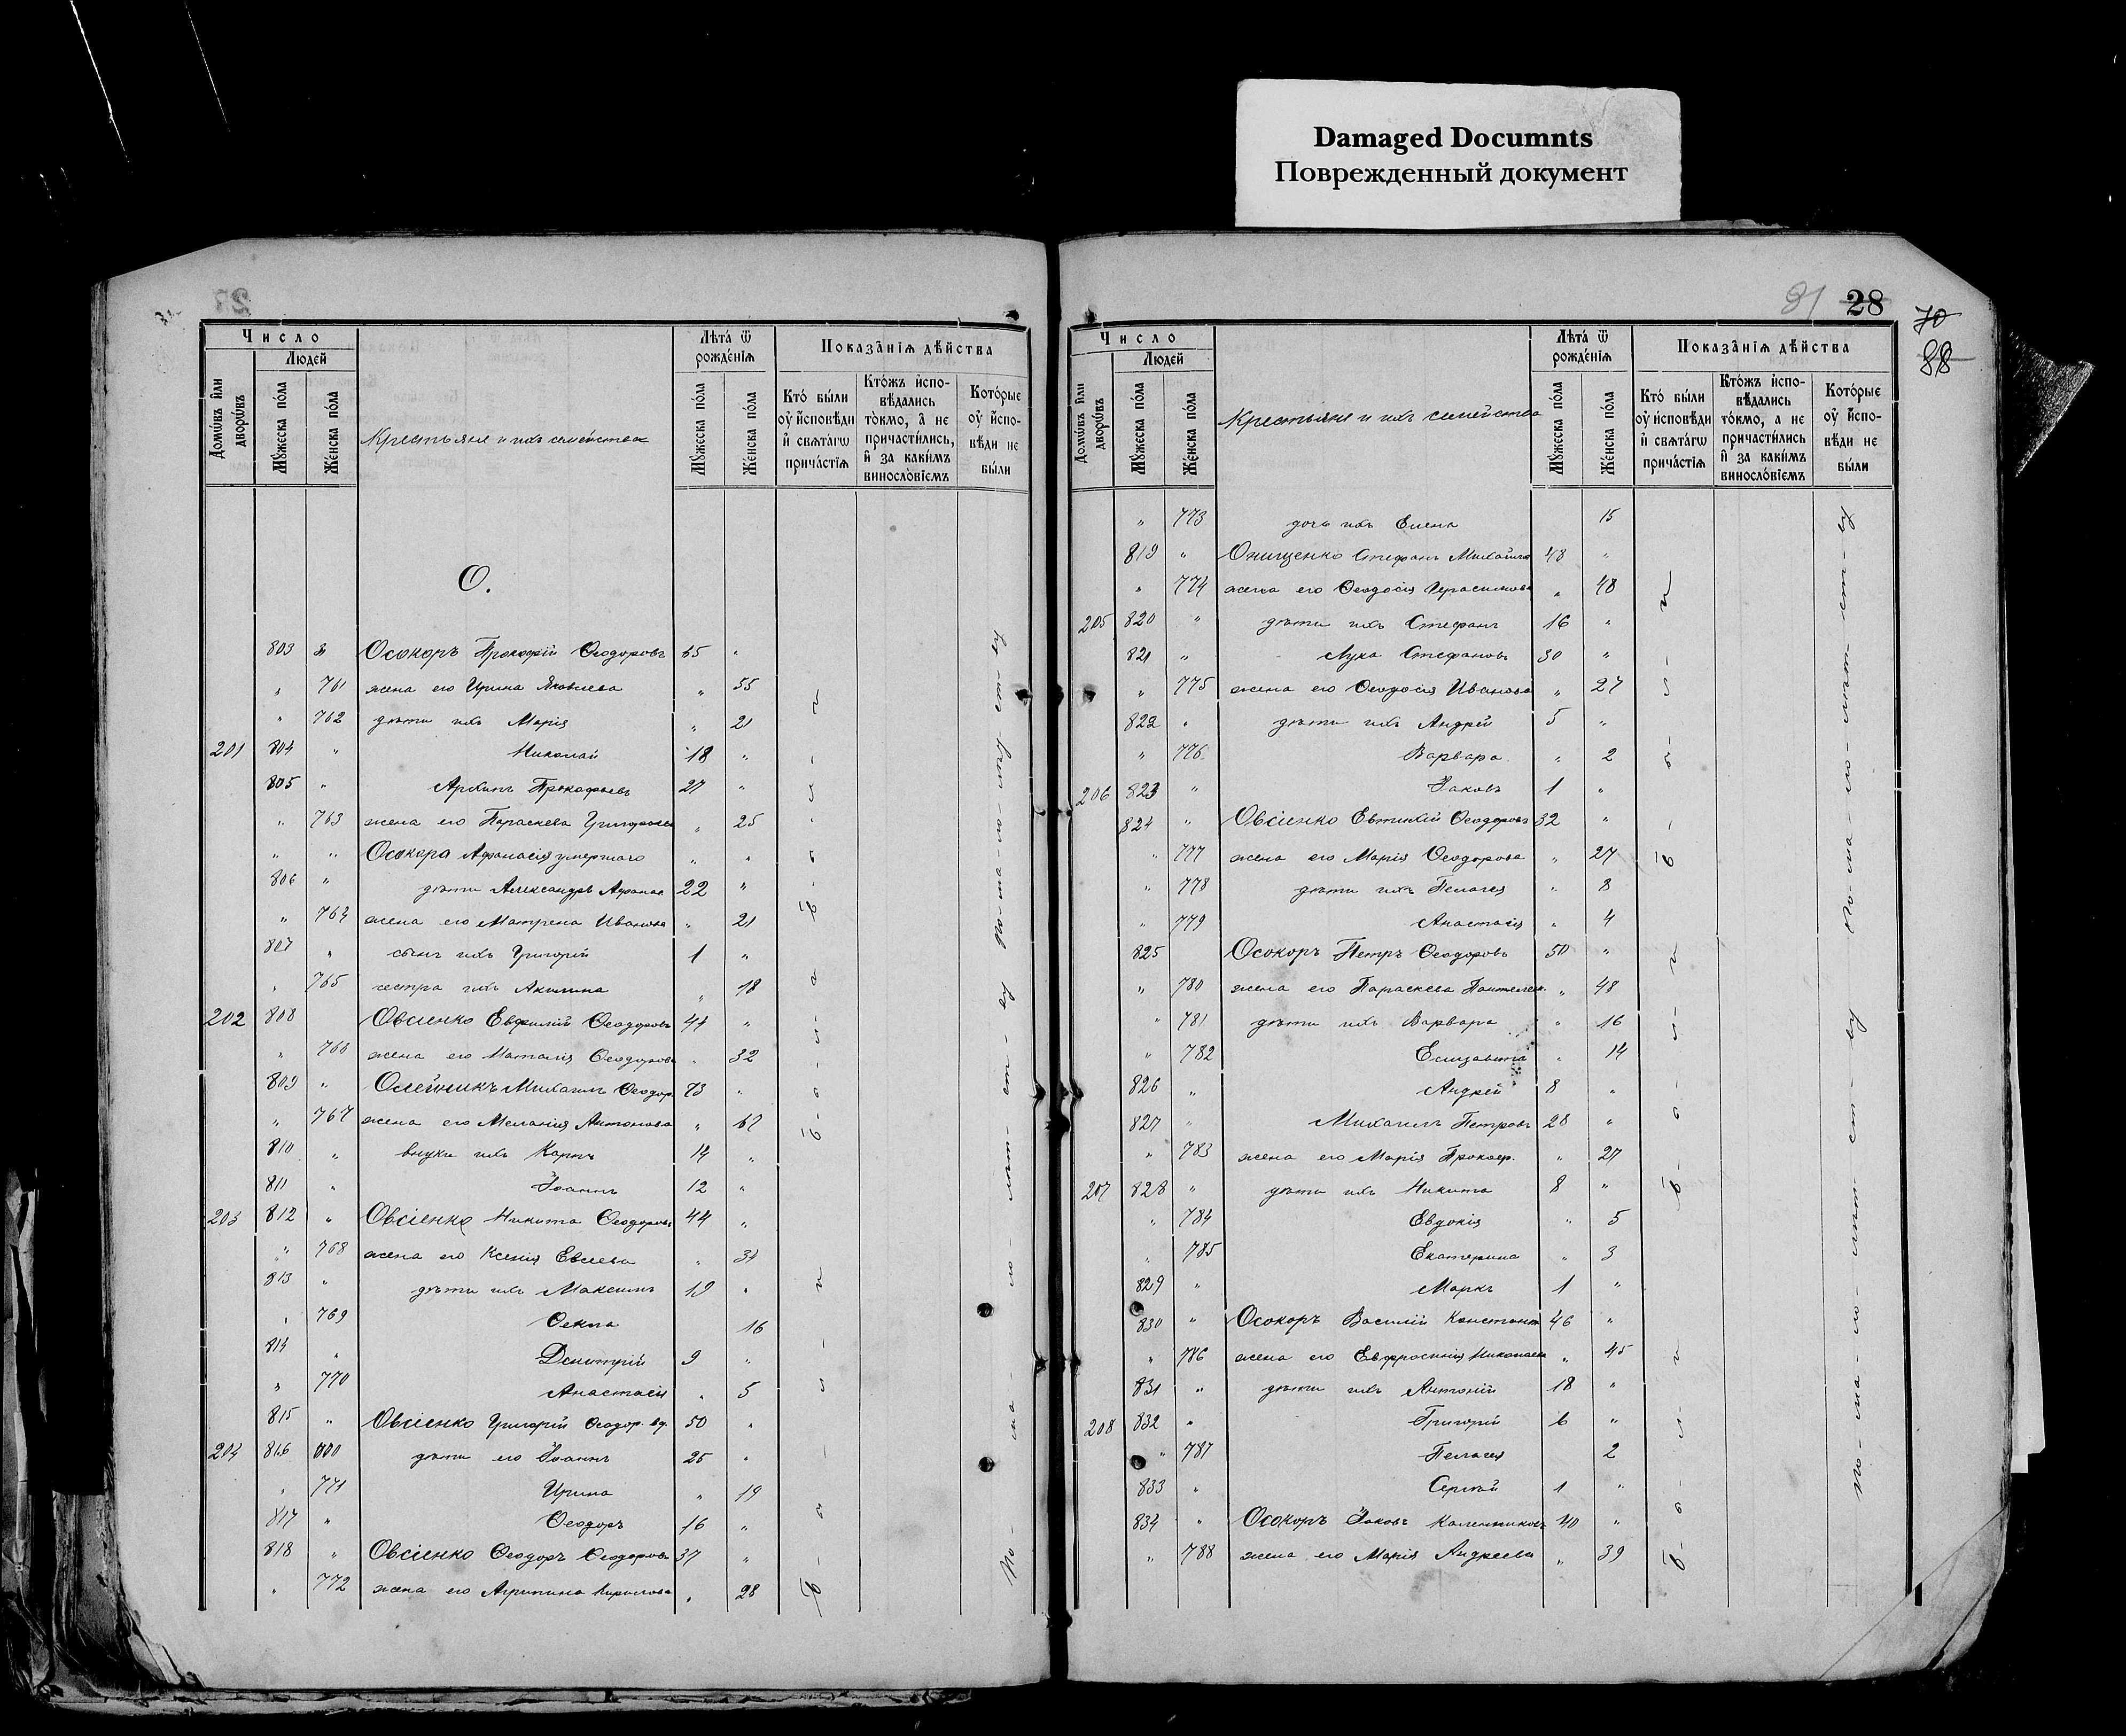 Damaged Documnts
Поврежденный документ
Число
Людей
Домѡвъ и҆лѝ дворѡвъ
Мꙋ́жеска по́ла
Же́нска по́ла
Крестьяне и ихъ семейства
Лѣ́та ѿ рожде́нїѧ
Мꙋ́жеска по́ла
Же́нска по́ла
Показа̑нїѧ дѣ́йства
Кто̀ бы́ли оу҆ и҆сповѣ́ди и҆ свѧта́гѡ прича́стїѧ
Кто́жъ и҆сповѣ́дались то́кмо, а҆ не причасти́лись, и҆ за каки́мъ виносло́вїемъ
Кото́рые оу҆ и҆сповѣ́ди не бы́ли
О.
803 " Осокоръ Прокофій Ѳеодоровъ 65 "
" 761 жена его Ирина Яковлева " 55
" 762 дѣти ихъ Марія " 21
201 804 " Николай 18 "
805 " Архипъ Прокофьевъ 27 "
" 763 жена его Параскева Григорьева " 25
" " Осокора Афанасія умершаго " "
806 " дѣти Александръ Афанас 22 "
" 764 жена его Матрена Иванова " 21
807 " сынъ ихъ Григорій 1 "
" 765 сестра ихъ Акилина " 18
202 808 Овсіенко Евфимій Ѳеодоровъ 41 "
" 766 жена его Наталія Ѳеодорова " 32
809 " Олейникъ Михаилъ Ѳеодор. 73 "
" 767 жена его Меланія Антонова " 67
810 " внуки ихъ Карпъ 14 "
811 " Іоаннъ 12 "
203 812 " Овсіенко Никита Ѳеодоровъ 44 "
" 768 жена его Ксенія Евсеева "
813 " дѣти ихъ Максимъ 19 "
" 769 Ѳекла 16
814 " Димитрій 9 "
" 770 Анастасія " 5
815 " Овсіенко Григорій Ѳеодор. вд. 50 "
204 816 000 дѣти его Іоаннъ 25 "
" 771 Ирина " 19
817 " Ѳеодоръ 16 "
818 " Овсіенко Ѳеодоръ Ѳеодоровъ 37 "
" 772 жена его Агрипина Кирилова " 28
б-ы-л-и
б-ы-л-и
б-ы-л-и
28
70
88
Число
Людей
Домѡвъ и҆лѝ дворѡвъ
Мꙋ́жеска по́ла
Же́нска по́ла
Крестьяне и ихъ семейства
Лѣ́та ѿ рожде́нїѧ
Мꙋ́жеска по́ла
Же́нска по́ла
Показа̑нїѧ дѣ́йства
Кто̀ бы́ли оу҆ и҆сповѣ́ди и҆ свѧта́гѡ прича́стїѧ
Кто́жъ и҆сповѣ́дались то́кмо, а не причасти́лись, и҆ за каки́мъ виносло́вїемъ
Кото́рые оу҆ и҆сповѣ́ди не бы́ли
" 773 дочь ихъ Елена 15
819 " Онищенко Стефанъ Михайлов 48 "
" 774 жена его Ѳеодосія Герасимова " 48
205 820 " дѣти ихъ Стефанъ 16 "
821 " Лука Стефановъ 30 "
" 775 жена его Ѳеодосія Иванова " 27
822 " дѣти ихъ Андрей 5 "
" 776 Варвара " 2
206 823 " Іаковъ 1 "
824 " Овсіенко Евтихій Ѳеодоровъ 32 "
" 777 жена его Марія Ѳеодорова " 27
" 778 дѣти ихъ Пелагея " 8
" 779 Анастасія " 4
825 Осокоръ Петръ Ѳеодоровъ 50 "
" 780 жена его Параскева Пантелеи " 48
" 781 дѣти ихъ Варвара " 16
" 782 Елизавета " 14
826 " Андрей 8 "
827 " Михаилъ Петровъ 28 "
" 783 жена его Марія Прокоф. " 27
207 828 " дѣти ихъ Никита 8 "
" 784 Евдокія " 5
" 785 Екатерина " 3
829 " Маркъ 1 "
830 " Осокоръ Василій Констант 46 "
" 786 жена его Евфросинія Николаева " 45
831 " дѣти ихъ Антоній 18 "
208 832 " Григорій 6 "
" 787 Пелагея 2
833 " Сергѣй 1 "
834 " Осокоръ Іаковъ Калениковъ 40 "
" 788 жена его Марія Андреева " 39
б-ы-л-и
б-ы-л-и
б-ы-л-и